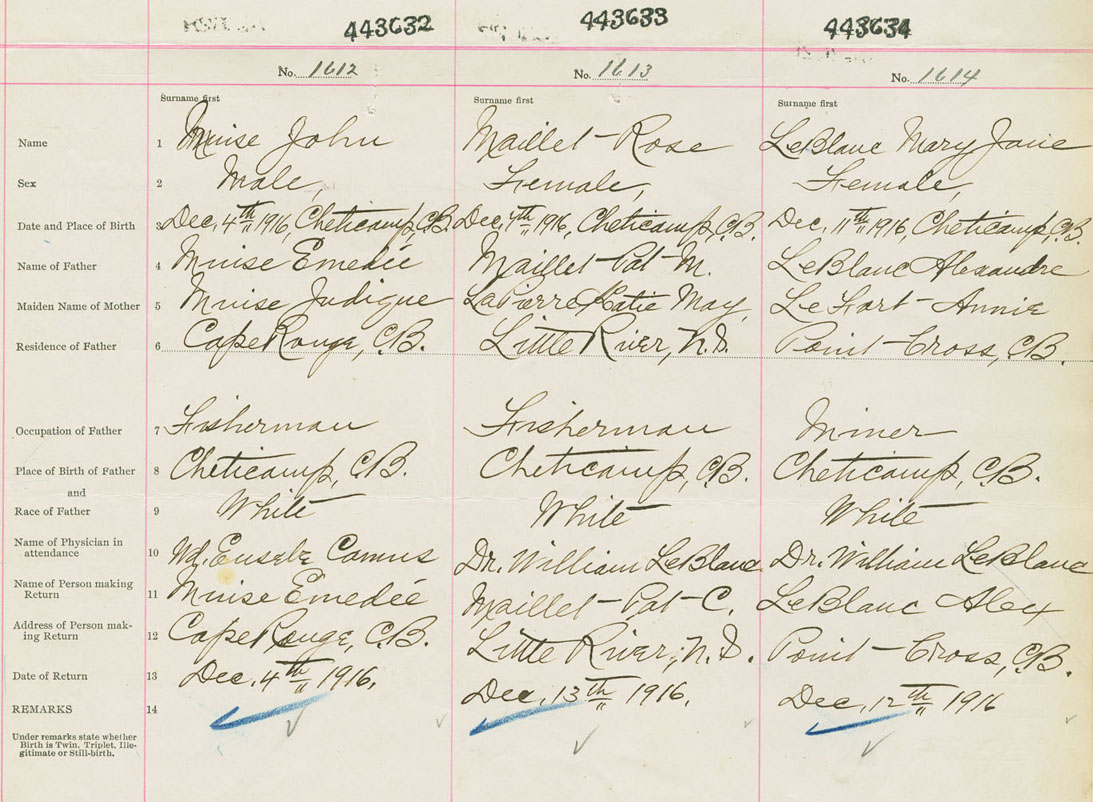 443632 443633 443634
No. 1612 No. 1613 No. 1614
Surname first Surname first Surname first
Name 1 Muise John Maillet - Rose LeBlanc Mary Jane
Sex 2 Male, Female, Female,
Date and Place of Birth 3 Dec. 4th 1916, Cheticamp, C.B. Dec. 4th 1916, Cheticamp, C.B. Dec. 11th 1916, Cheticamp, C.B.
Name of Father 4 Muise Emedée Maillet - Pat - M. LeBlanc Alexandre
Maiden Name of Mother 5 Muise Judique LaPierre Katie May, Le Fort - Annie
Residence of Father 6 Cape Rouge, C.B. Little River, N.S. Point - Cross, C.B.
Occupation of Father 7 Fisherman Fisherman Miner
Place of Birth of Father 8 Cheticamp, C.B. Cheticamp, C.B. Cheticamp, C.B.
and
Race of Father 9 White White White
Name of Physician in
attendance 10 Wd. Eusebe Camus Dr. William LeBlanc Dr. William LeBlanc
Name of Person making
Return 11 Muise Emedée Maillet - Pat - C. LeBlanc Alex
Address of Person mak-
ing Return 12 Cape Rouge, C.B. Little River, N.S. Point - Cross, C.B.
Date of Return 13 Dec. 4th 1916. Dec. 13th 1916. Dec. 12th 1916
REMARKS 14
Under remarks state whether
Birth is Twin, Triplet, Ille-
gitimate or Still-birth.